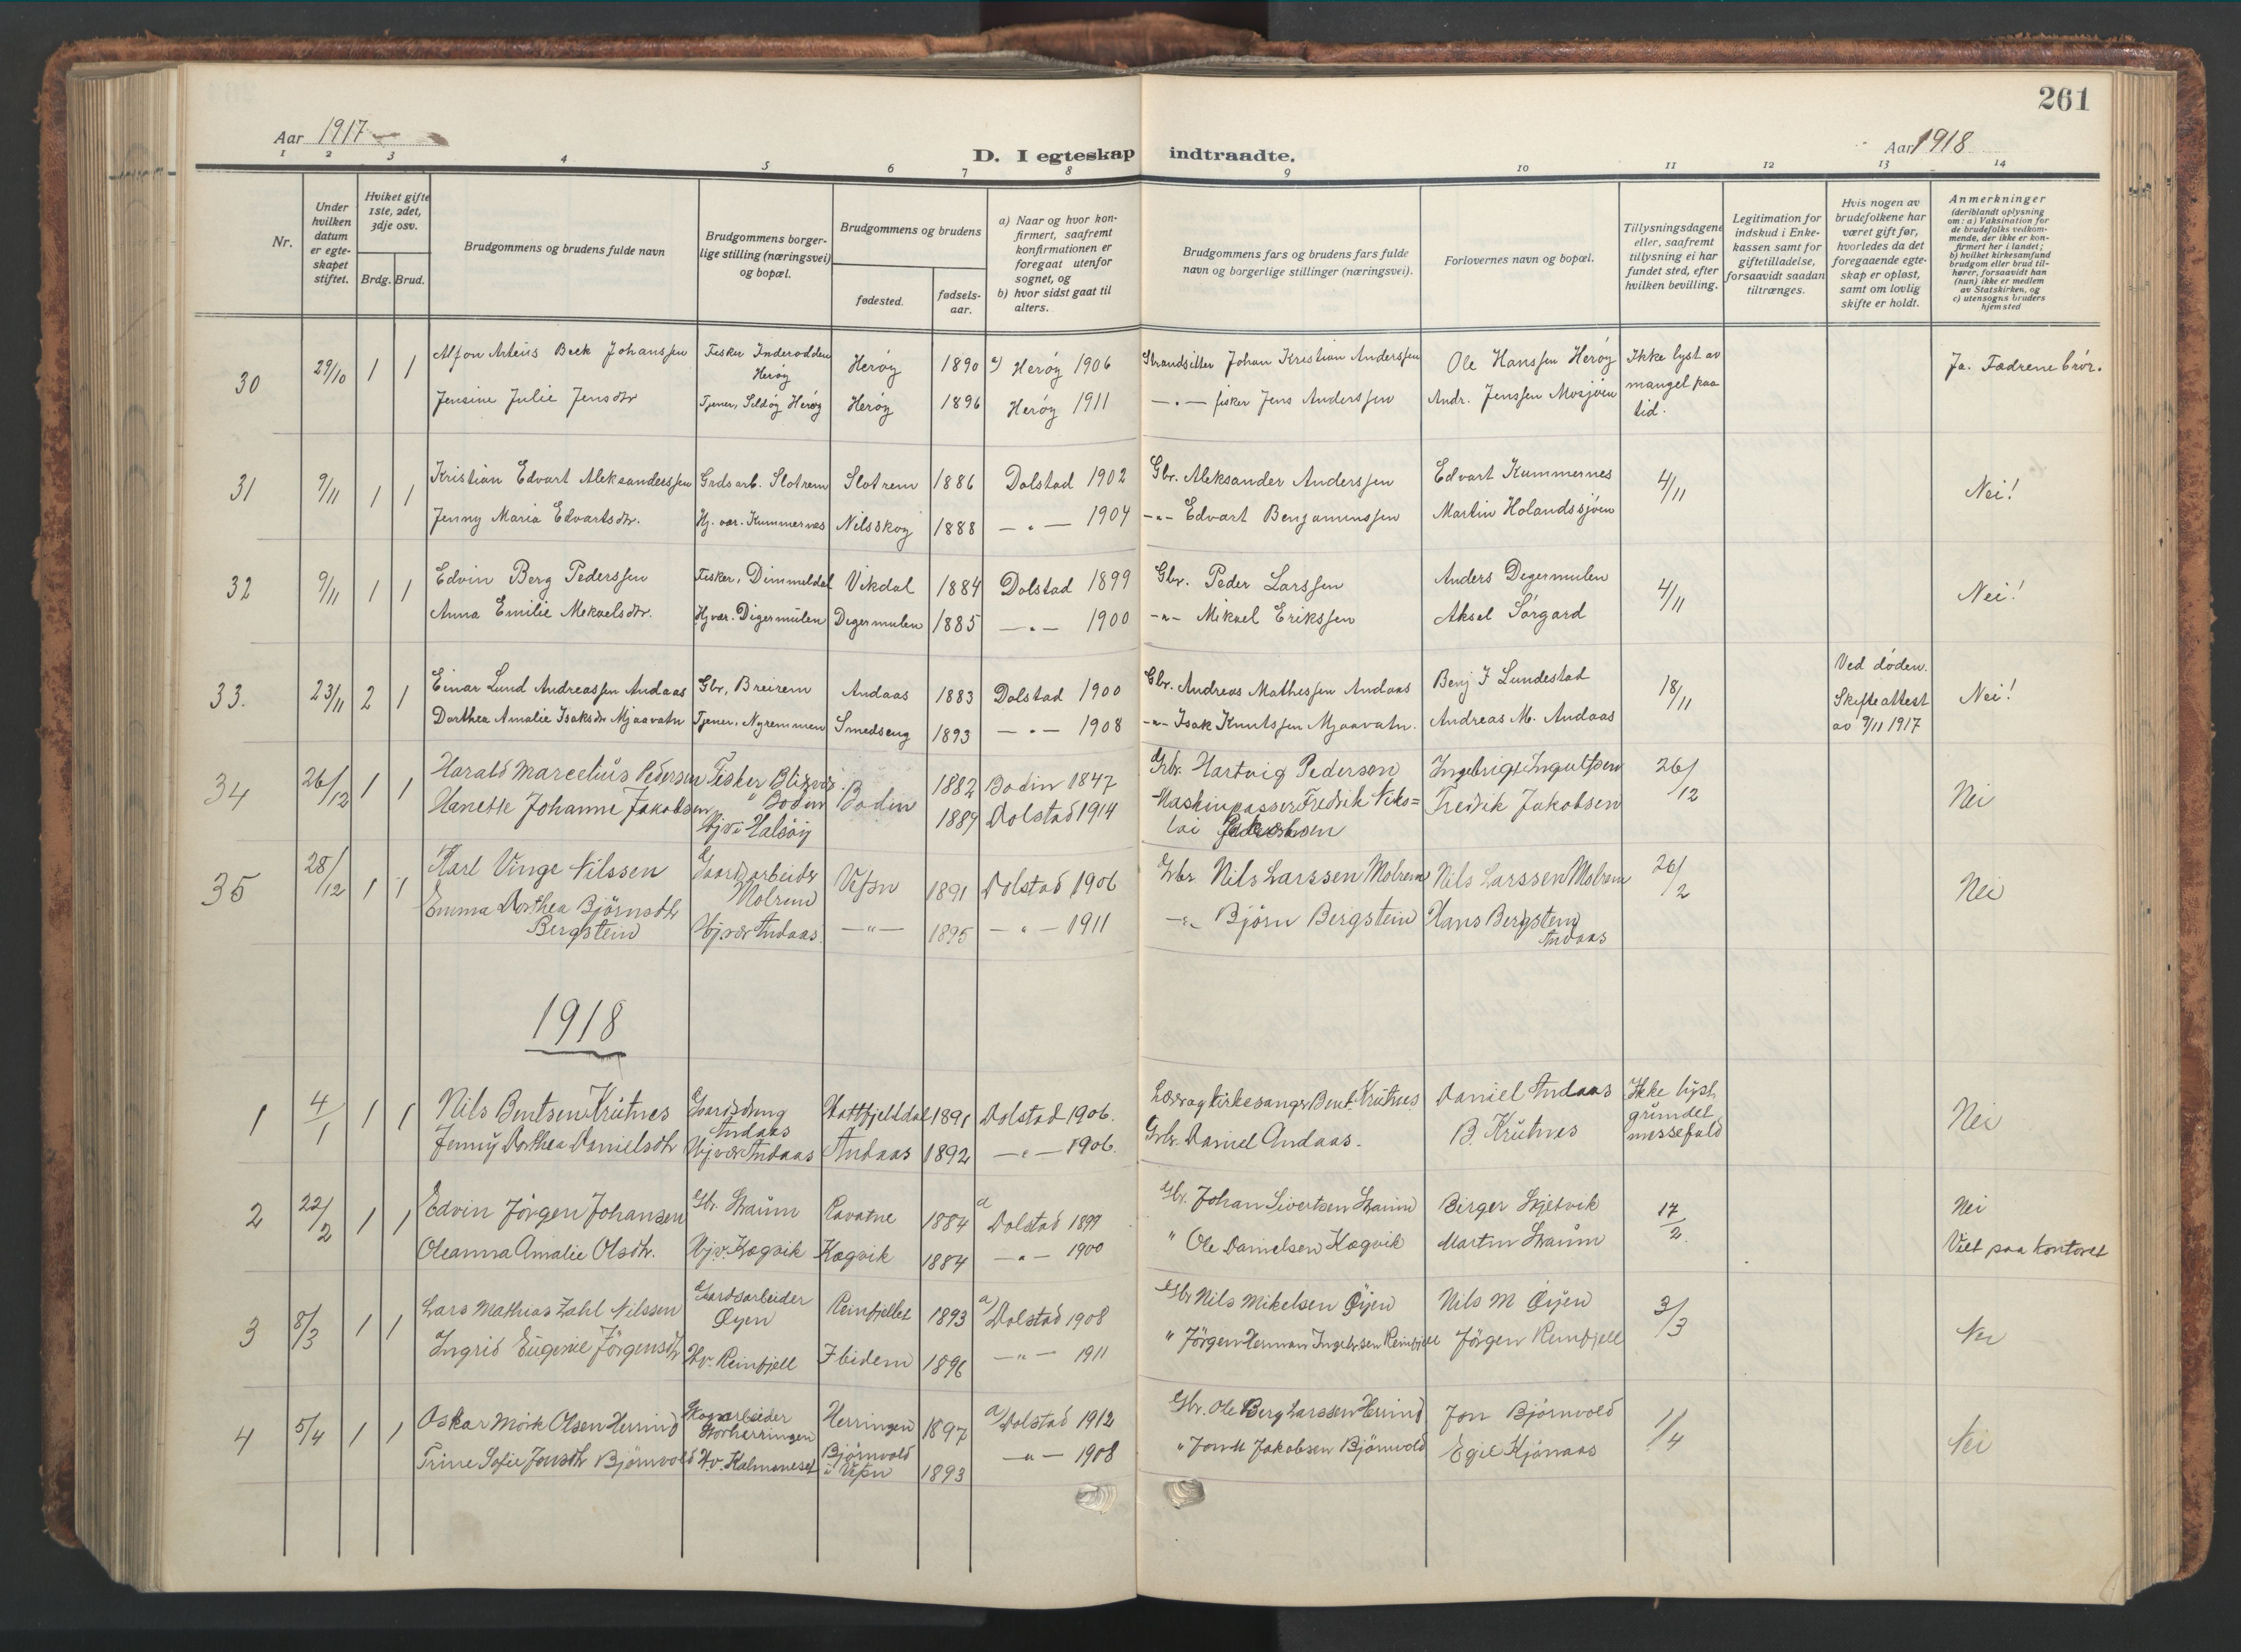 261
Aar 1917
D. I egteskap indtraadte.
Aar 1918
1 2 3 4 5 6 7 8 9 10 11 12 13 14
Nr.
Under hvilken datum er egteskapet stiftet.
Hvilket gifte 1ste, 2det, 3dje osv.
Brdg. Brud.
Brudgommens og brudens fulde navn
Brudgommens borgerlige stilling (næringsvei) og bopæl.
Brudgommens og brudens
fødested.
fødselsaar.
a) Naar og hvor konfirmert, saafremt konfirmationen er foregaat utenfor sognet, og
b) hvor sidst gaat til alters.
Brudgommens fars og brudens fars fulde navn og borgerlige stillinger (næringsvei).
Forlovernes navn og bopæl.
Tillysningsdagene eller, saafremt tillysning ei har fundet sted, efter hvilken bevilling.
Legitimation for indskud i Enkekassen samt for giftetilladelse, forsaavidt saadan tiltrænges.
Hvis nogen av brudefolkene har været gift før, hvorledes da det foregaaende egteskap er opløst, samt om lovlig skifte er holdt.
Anmerkninger (deriblandt oplysning om: a) Vaksination for de brudefolks vedkommende, der ikke er konfirmert her i landet; b) hvilket kirkesamfund brudgom eller brud tilhører, forsaavidt han (hun) ikke er medlem av Statskirken, og c) utensogns bruders hjemsted
30 29/10 1 1 Alfon Arteus Beck Johanssen Fisker Inderodden Herøy Herøy 1890 a) Herøy 1906 Strandsitter Johan Kristian Anderssen Ole Hanssen Herøy Ikke lyst av mangel paa tid. Ja. Fædrene brór.
Jensine Julie Jensdtr Tjener, Seldøy Herøy Herøy 1896 Herøy 1911 — " — fisker Jens Anderssen Andr. Jenssen Mosjøen
31 9/11 1 1 Kristian Edvart Aleksanderssen Grdsarb. Slotrem Slotrem 1886 Dolstad 1902 Gbr. Aleksander Anderssen Edvart Kummernes 4/11 Nei!
Jenny Maria Edvartsdtr. Hj. vær. Kummernes Nilsskog 1888 — " — 1904 - " - Edvart Benjaminssen Martin Holandssjøen
32 9/11 1 1 Edvin Berg Pederssen Fisker, Dimmeldal Vikdal 1884 Dolstad 1899 Gbr. Peder Larssen Anders Degermulen 4/11 Nei!
Anna Emilie Mekaelsdtr. Hj vær. Digermulen Degermulen 1885 — " — 1900 - " - Mikael Erikssen Aksel Sørgard
33. 23/11 2 1 Einar Lund Andreassen Andaas Gbr, Breirem Andaas 1883 Dolstad 1900 Gbr. Andreas Mathissen Andaas Benj J Lundestad 18/11 Ved døden. Skifteattest av 9/11 1917 Nei!
Dorthea Amalie Isaksdtr Mjaavatn Tjener, Nyremmen Smedseng 1893 — " — 1908 - " - Isak Knutssen Mjaavatn. Andreas M. Andaas
34 26/12 1 1 Harald Marcelius Pedersen Fisker Bodin 1882 Bodin 1847 Grbr. Hartvig Pederson 26/12 Nei
Hanette Johanne Jakobsen " Bodin Hjv i Halsöy 1889 Dolstad 1914 Maskinpasser Fredrik Nikolai Fredrik Jakobsen
35 28/12 1 1 Karl Vinge Nilssen Gaardsarbeider Molrem Vefsn 1891 Dolstad 1906 Gbr Nils Larssen Molrem Nils Larssen Molrem 26/2 Nei
Emma Dorthea Björnsdtr Bergstein Hjvær Andaas. — " — 1895 — " — 1911 — " — Björn Bergstein Hans Bergstein Andaas
1918
1 4/1 1 1 Nils Bentsen Krutnes Gaardsdreng Andaas Hattfjelldal 1891 Dolstad 1906. Lærer og kirkesanger Bent. Krutnes Daniel Andaas Ikke lyst grundet messefald Nei
Jenny Dorthea Danielsdtr Hjvær Andaas Andaas 1892 — " — 1906. Grbr. Daniel Andaas. B. Krutnes
2 22/2 1 1 Edvin Jörgen Johansen Gbr. Straum Ravatne 1884 a Dolstad 1899 Gbr. Johan Sivertsen Straum Birger Skjelvik 17/2 Nei
Oleanna Amalie Olsdtr. Hjv. Kogvik Kogvik 1884 — " — 1900 " Ole Danielsen Kogvik Martin Straum Viet paa kontoret
3 8/3 1 1 Lars Mathias Zahl Nilssen Gaardsarbeider Øyen Reinfjellet 1893 a) Dolstad 1908 Gbr Nils Mikelsen Øyen Nils M Øyen 3/3 Nei
Ingrid Eugenie Jörgensdtr Hv. Reinfjell Ibidem 1896 — " — 1911 " Jörgen Herman Ingebrsen Reinfjell Jörgen Reinfjell
4 5/4 1 1 Oskar Mörk Olsen Herring Skogarbeider Storherringen Herringen 1897 a) Dolstad 1912 Gbr. Ole Berg Larssen Herring Jon Björnvold 1/4 Nei
Trine Sofie Jonsdtr Björnvold Hv. Kalmoneset Björnvold i Vefsn 1893 — " — 1908 " Jonst Jakobsen Björnvold Egil Kjönaas